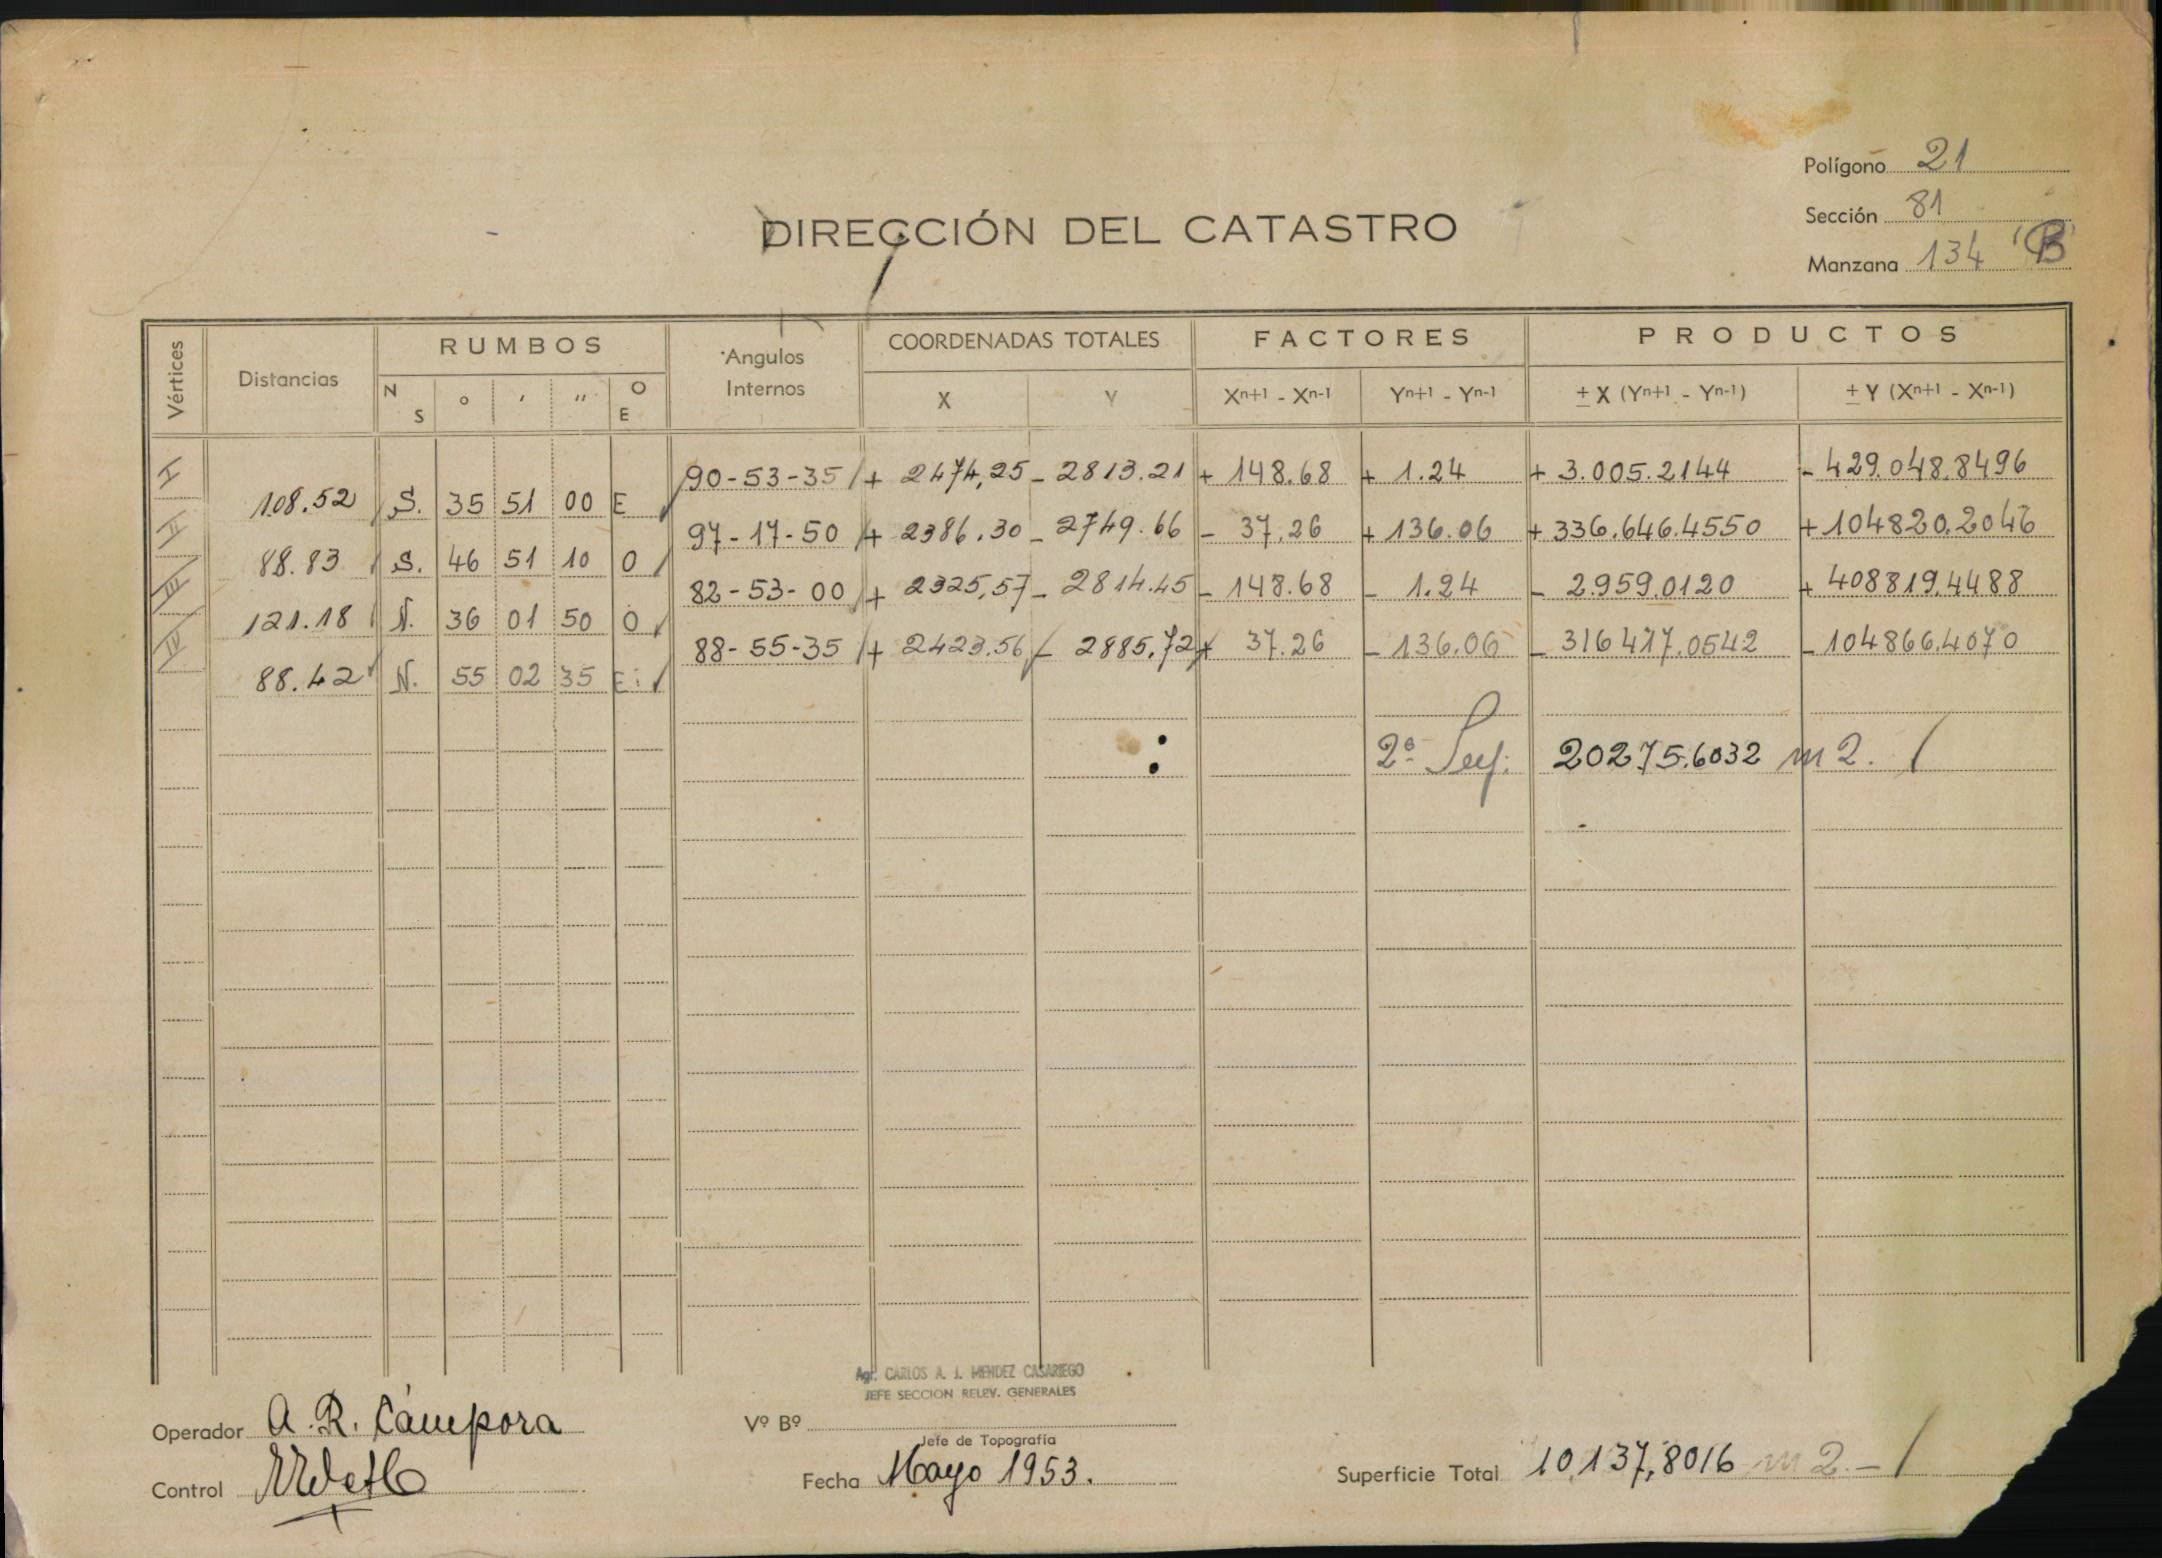 Polígono 21
Sección 81
Manzana 134 "B"
DIRECCIÓN DEL CATASTRO
Vértices Distancias RUMBOS Angulos Internos COORDENADAS TOTALES FACTORES PRODUCTOS
N S ° ' " O E X Y Xn+1 - Xn-1 Yn+1 - Yn-1 ± X (Yn+1 - Yn-1) ± Y (Xn+1 - Xn-1)
I 90-53-35 + 2474,25 - 2813.21 + 148.68 + 1.24 + 3.005.2144 - 429.048.8496
108.52 S. 35 51 00 E
II 97-17-50 + 2386.30 - 2749.66 - 37.26 + 136.06 + 336.646.4550 + 104820.2046
88.83 S. 46 51 10 O
III 82-53-00 + 2325,57 - 2814.45 - 148.68 - 1.24 - 2.959.0120 + 408819.4488
121.18 N. 36 01 50 O
IV 88-55-35 + 2423.56 - 2885,72 + 37.26 - 136.06 - 316417.0542 - 104866.4070
88.42 N. 55 02 35 E
2ª Sup. 20275.6032 m2.
Agr. CARLOS A. J. MENDEZ CASARIEGO
JEFE SECCION RELEV. GENERALES
Operador A. R. Cámpora
Vº Bº
Jefe de Topografía
Control
Fecha Mayo 1953.
Superficie Total 10.137,8016 m2.-